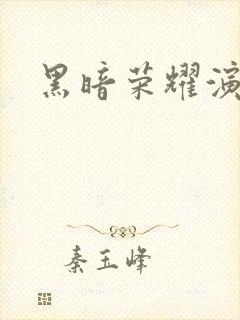 黑暗荣耀演
秦玉峰